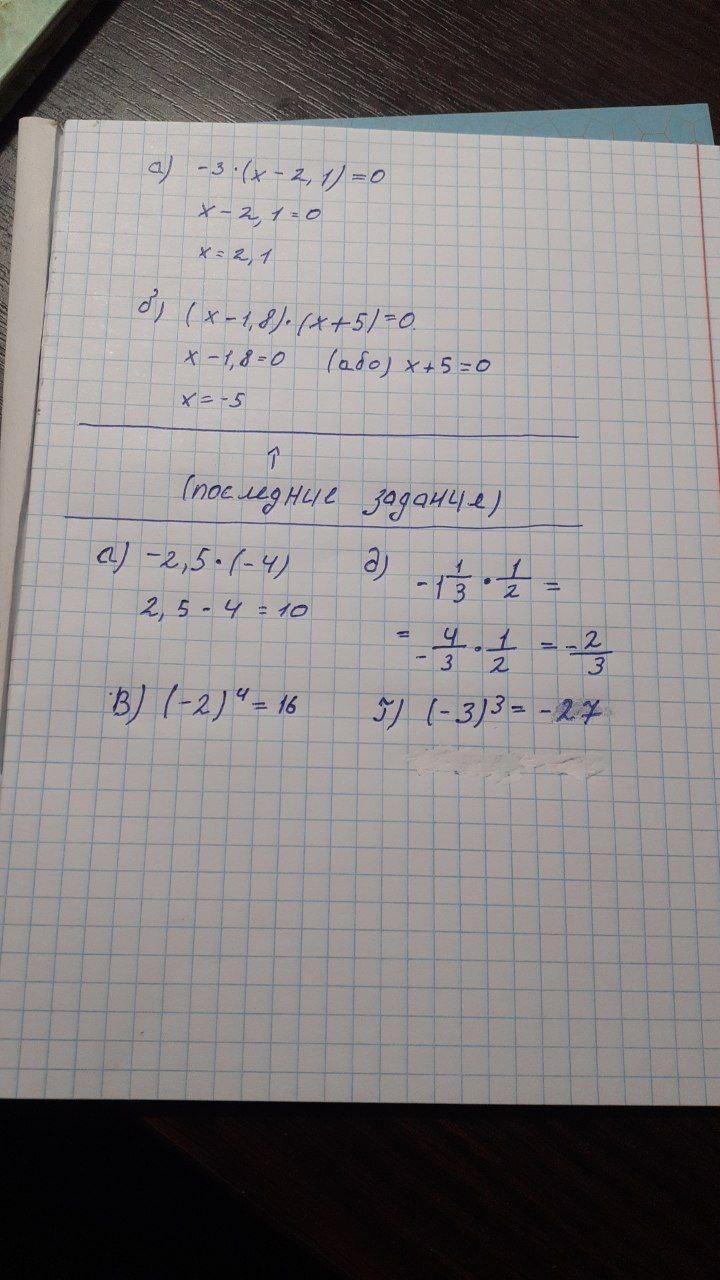 а) -3·(x-2,1)=0
x-2,1=0
x=2,1
б) (x-1,8)·(x+5)=0
x-1,8=0 (або) x+5=0
x=-5
↑
(последние задания)
а) -2,5·(-4)
2,5-4=10
д) -1 1/3 · 1/2 =
= -4/3 · 1/2 = -2/3
в) (-2)⁴=16
г) (-3)³= -27